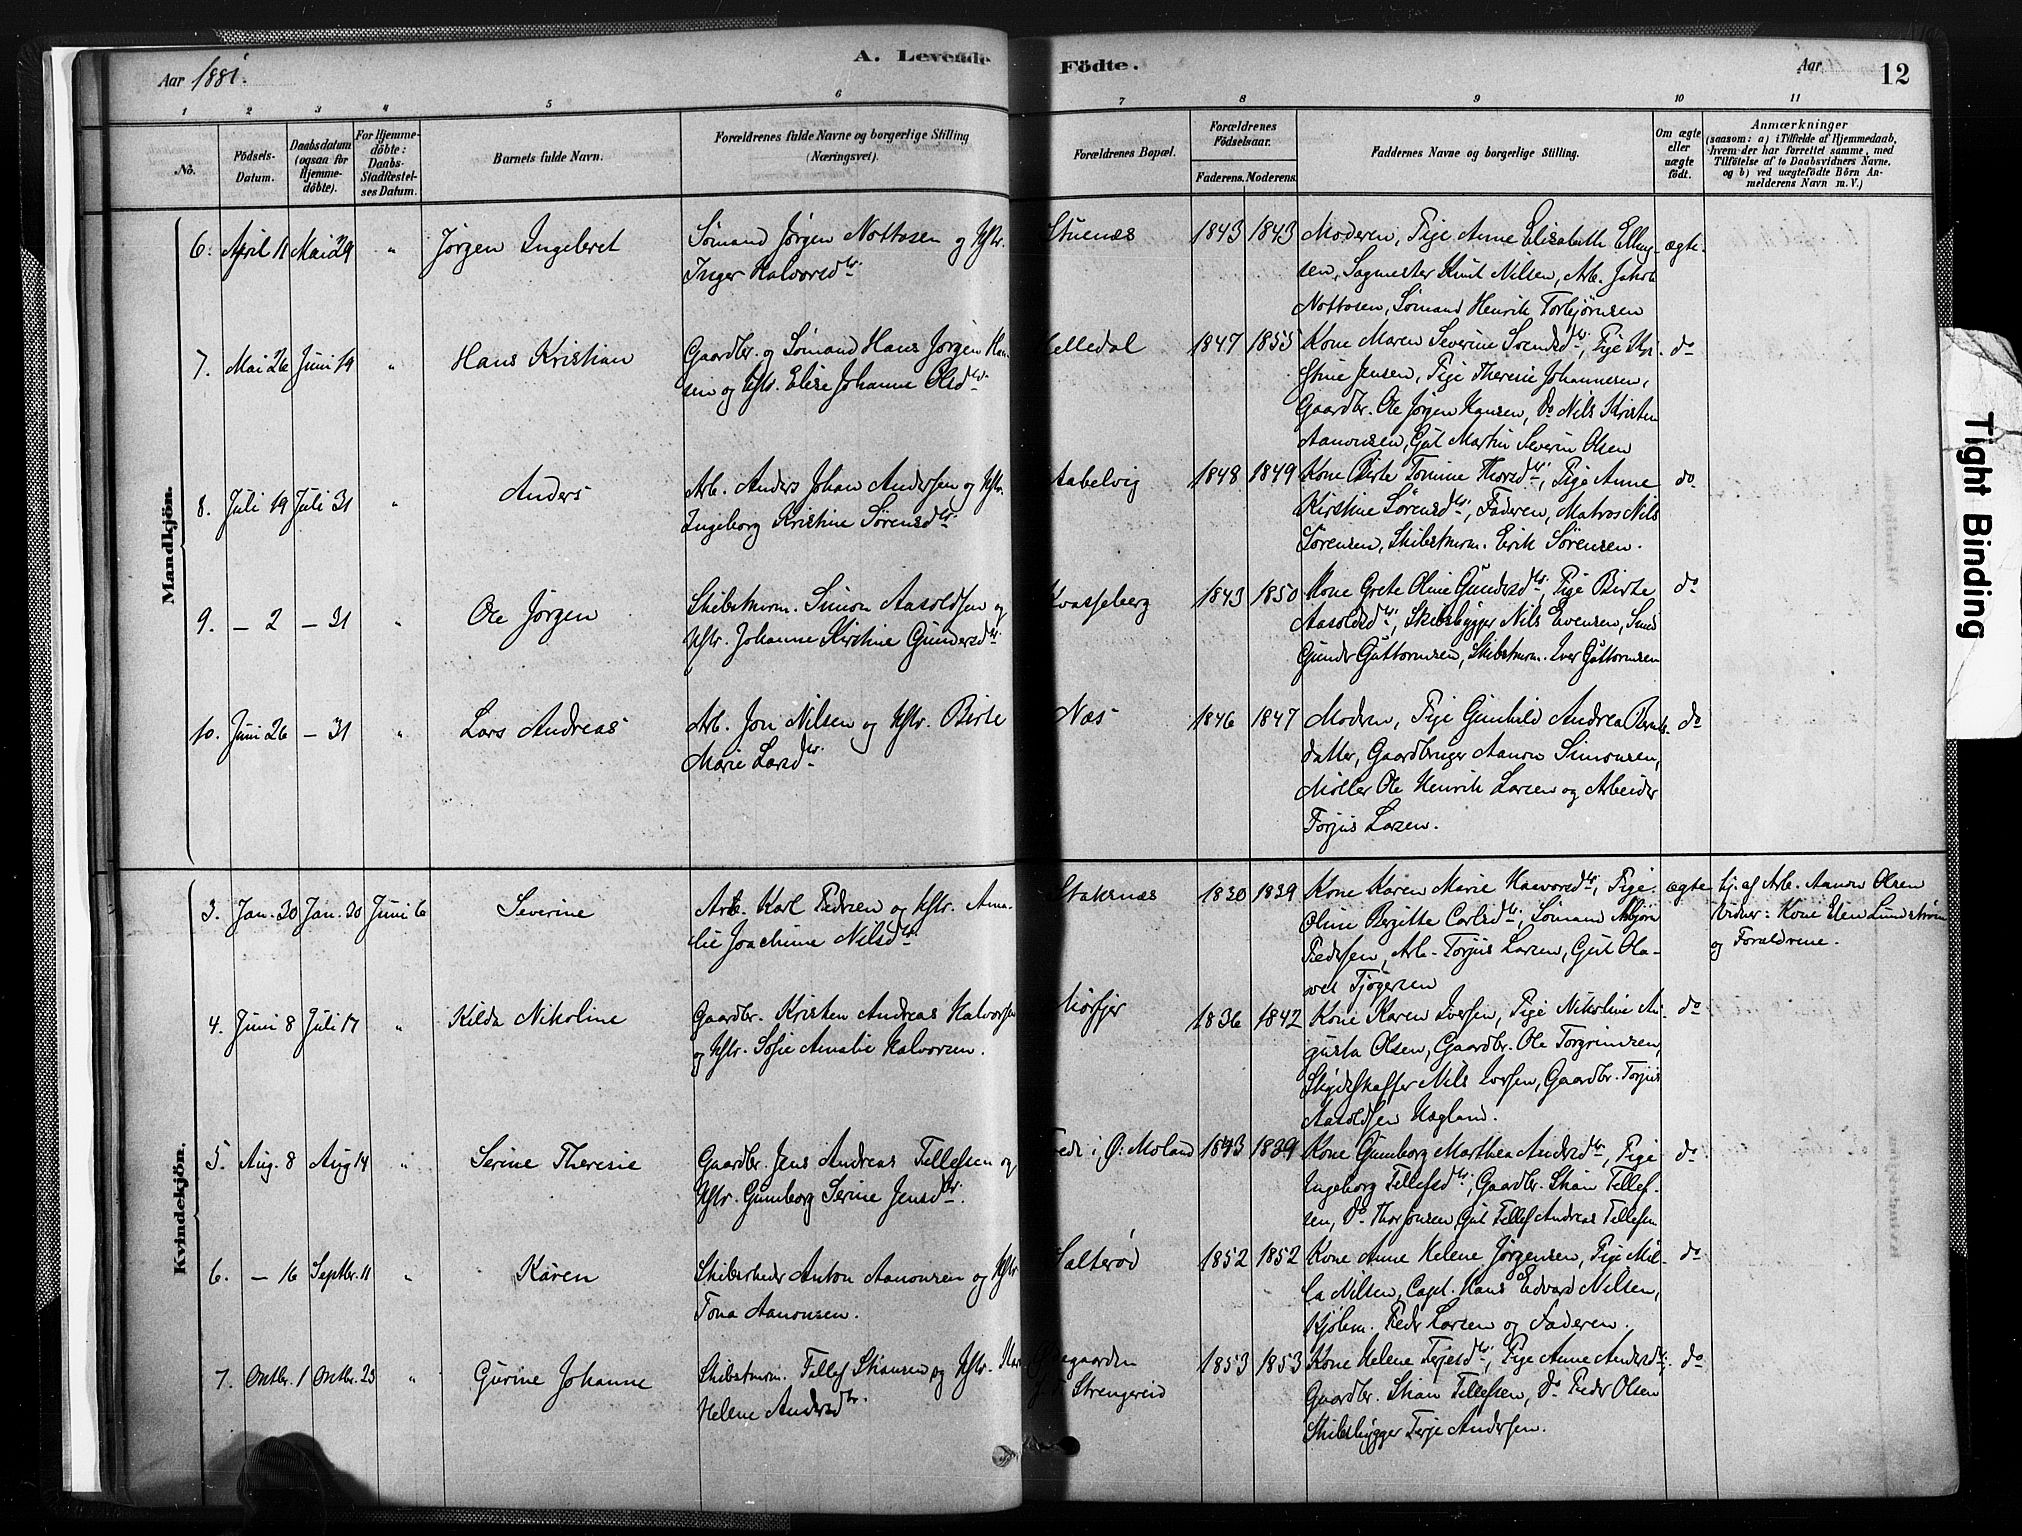 A. Levende Födte.
Aar 1881.
Aar
12
1 2 3 4 5 6 7 8 9 10 11
No.
Födsels-Datum.
Daabsdatum (ogsaa for Hjemme-döbte).
For Hjemme-döbte: Daabs-Stadfæstel-ses Datum.
Barnets fulde Navn.
Forældrenes fulde Navne og borgerlige Stilling (Næringsvei).
Forældrenes Bopæl.
Forældrenes Födselsaar.
Faderens. Moderens.
Faddernes Navne og borgerlige Stilling.
Om ægte eller uægte födt.
Anmærkninger
(saasom: a) i Tilfælde af Hjemmedaab, hvem der har forrettet samme, med Tilföielse af to Daabsvidners Navne, og b) ved uægtefödte Börn An-melderens Navn m. V.)
Mandkjön.
6. April 11 Mai 29 " Jørgen Ingebret
Sømand Jørgen Nottosen og Hstr.
Inger Halvorsdtr.
Stuenæs 1843 1843
Moderen, Pige Anne Elisabeth Elling-
sen, Sagmester Knut Nilsen, Arb. Jakob
Nottosen, Sømand Henrik Torbjørnsen
ægte.
7. Mai 26 Juni 19 " Hans Kristian
Gaardbr. og Sømand Hans Jørgen Han-
sen og Hstr. Elise Johanne Olsdtr.
elledal 1847 1855
Kone Maren Severine Svendsdtr., Pige Kri-
stine Jensen, Pige Theresie Johannesen,
Gaardbr. Ole Jørgen Hansen, Do Nils Kristen
Aanonsen, Gut Martin Severin Olsen
do
8. Juli 19 Juli 31 " Anders
Arb. Anders Johan Andersen og Hstr.
Ingeborg Kristine Sørensdtr.
abelvig 1848 1849
Kone Birte Tomine Thorsdtr., Pige Anne
Kirstine Sørensdtr., Faderen, Matros Nils
Sørensen, Skibstmrm. Erik Sørensen.
do
9. – 2 – 31 " Ole Jørgen
Skibstmrm. Simon Aasoldsen og
Hstr. Johanne Kirstine Gundersdtr.
Kvasseberg 1843 1850
Kone Grete Oline Gundersdtr., Pige Birte
Aasoldsdtr., Skibsbygger Nils Evensen, Smed
Gunder Guttormsen, Skibstmrm. Iver Guttormsen
do
10. Juni 26 – 31 " Lars Andreas
Arb. Jon Nilsen og Hstr. Birte
Marie Larsdtr.
Næs 1846 1847
Moderen, Pige Gunhild Andrea Bernts-
datter, Gaardbruger Aanon Simonsen,
Møller Ole Henrik Larsen og Arbeider
Torjus Larsen.
do
Kvindekjön.
3. Jan. 30 Jan. 30 Juni 6 Severine
Arb. Karl Pedersen og Hstr. Ama-
lie Joachime Nilsdtr.
Staknæs 1830 1839
Kone Karen Marie Halvorsdtr., Pige
Oline Birgitte Carlsdtr., Sømand Asbjørn
Pedersen, Arb. Torjus Larsen, Gut Ola-
ves Tjøgersen
ægte
hj. af Arb. Aanon Olsen
Vidner: Kone Elen Lundstrøm
og Forældrene.
4. Juni 8 Juli 17 " Hilda Nikoline
Gaardbr. Kristen Andreas Halvorsen
og Hstr. Sofie Amalie Halvorsen.
Mørfjær 1836 1842
Kone Karen Iversen, Pige Nikoline Au-
gusta Olsen, Gaardbr. Ole Torgrimsen,
Skydsskaffer Nils Iversen, Gaardbr. Torjus
Aasoldsen Hagland.
do
5. Aug. 8 Aug 14 " Serine Theresie
Gaardbr. Jens Andreas Tellefsen og
Hstr. Gunborg Serine Jensdtr.
vede i Ø: Moland 1843 1839
Kone Gunborg Marthea Andersdtr., Pige
Ingeborg Tellefsdtr., Gaardbr. Stian Tellef-
sen, Do Thor Jonsen, Gut Tellef Andreas Tellefsen
do
6. – 16 Septbr. 11 " Karen
Skibsreder Anton Aanonsen og Hstr.
Tona Aanonsen.
Salterød 1852 1852
Kone Anne Helene Jørgensen, Pige Mil-
la Nilsen, Capt. Hans Edvard Nilsen,
Kjøbm. Peder Larsen og Faderen.
do
7. Oktbr. 1 Oktbr. 23 " Gurine Johanne
Skibstmrm. Tellef Stiansen og Hstr.
Helene Andersdtr.
Strengereid 1853 1853
Kone Helene Terjesdtr., Pige Anne Andersdtr.,
Gaardbr. Stian Tellefsen, Do Peder Olsen
Skibsbygger Terje Andersen.
do
Tight Binding